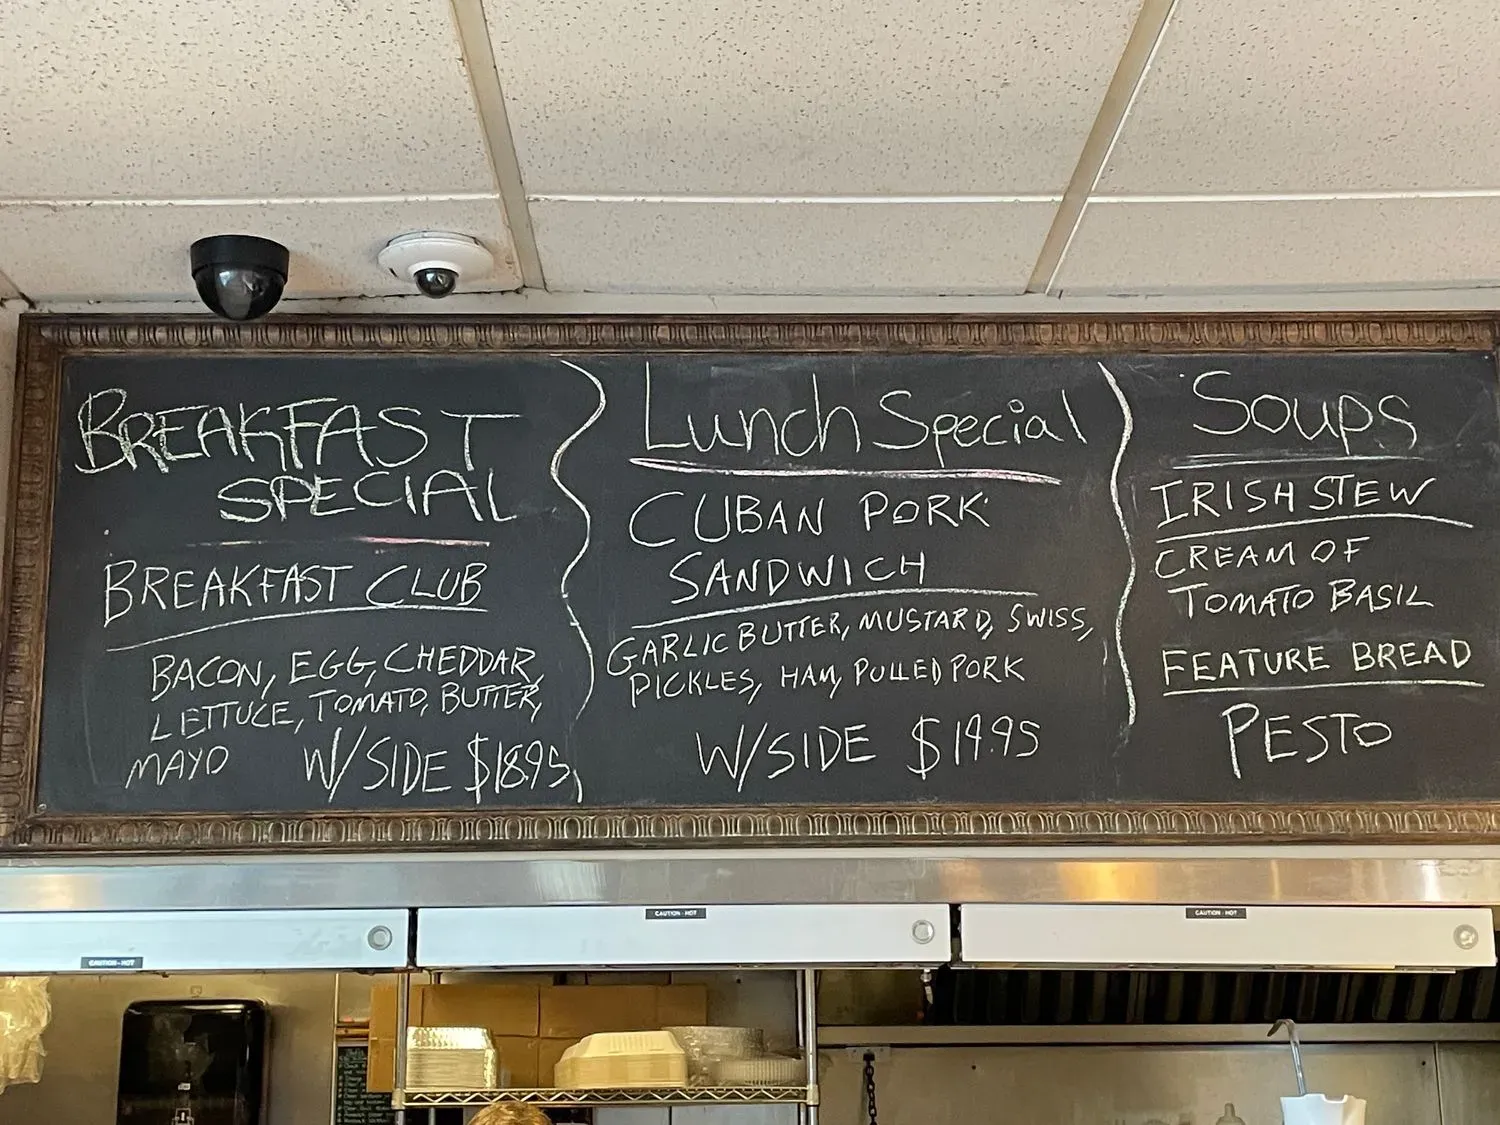 BREAKFAST
SPECIAL
BREAKFAST CLUB
BACON, EGG, CHEDDAR,
LETTUCE, TOMATO, BUTTER,
MAYO W/SIDE $18.95
Lunch Special
CUBAN PORK
SANDWICH
GARLIC BUTTER, MUSTARD, SWISS,
PICKLES, HAM, PULLED PORK
W/SIDE $19.95
Soups
IRISH STEW
CREAM OF
TOMATO BASIL
FEATURE BREAD
PESTO
CAUTION - HOT
CAUTION - HOT
CAUTION - HOT